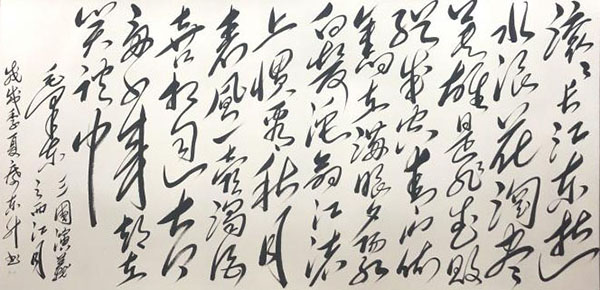 滚滚长江东逝
水浪花淘尽
英雄是非成败
空青山依
旧在 夕阳红
白发渔翁江渚
上惯看秋月
春风一壶浊酒
喜相逢古今
多少事都在
笑谈中
毛泽东三國演義
之西江月
戊戌季夏 东升书